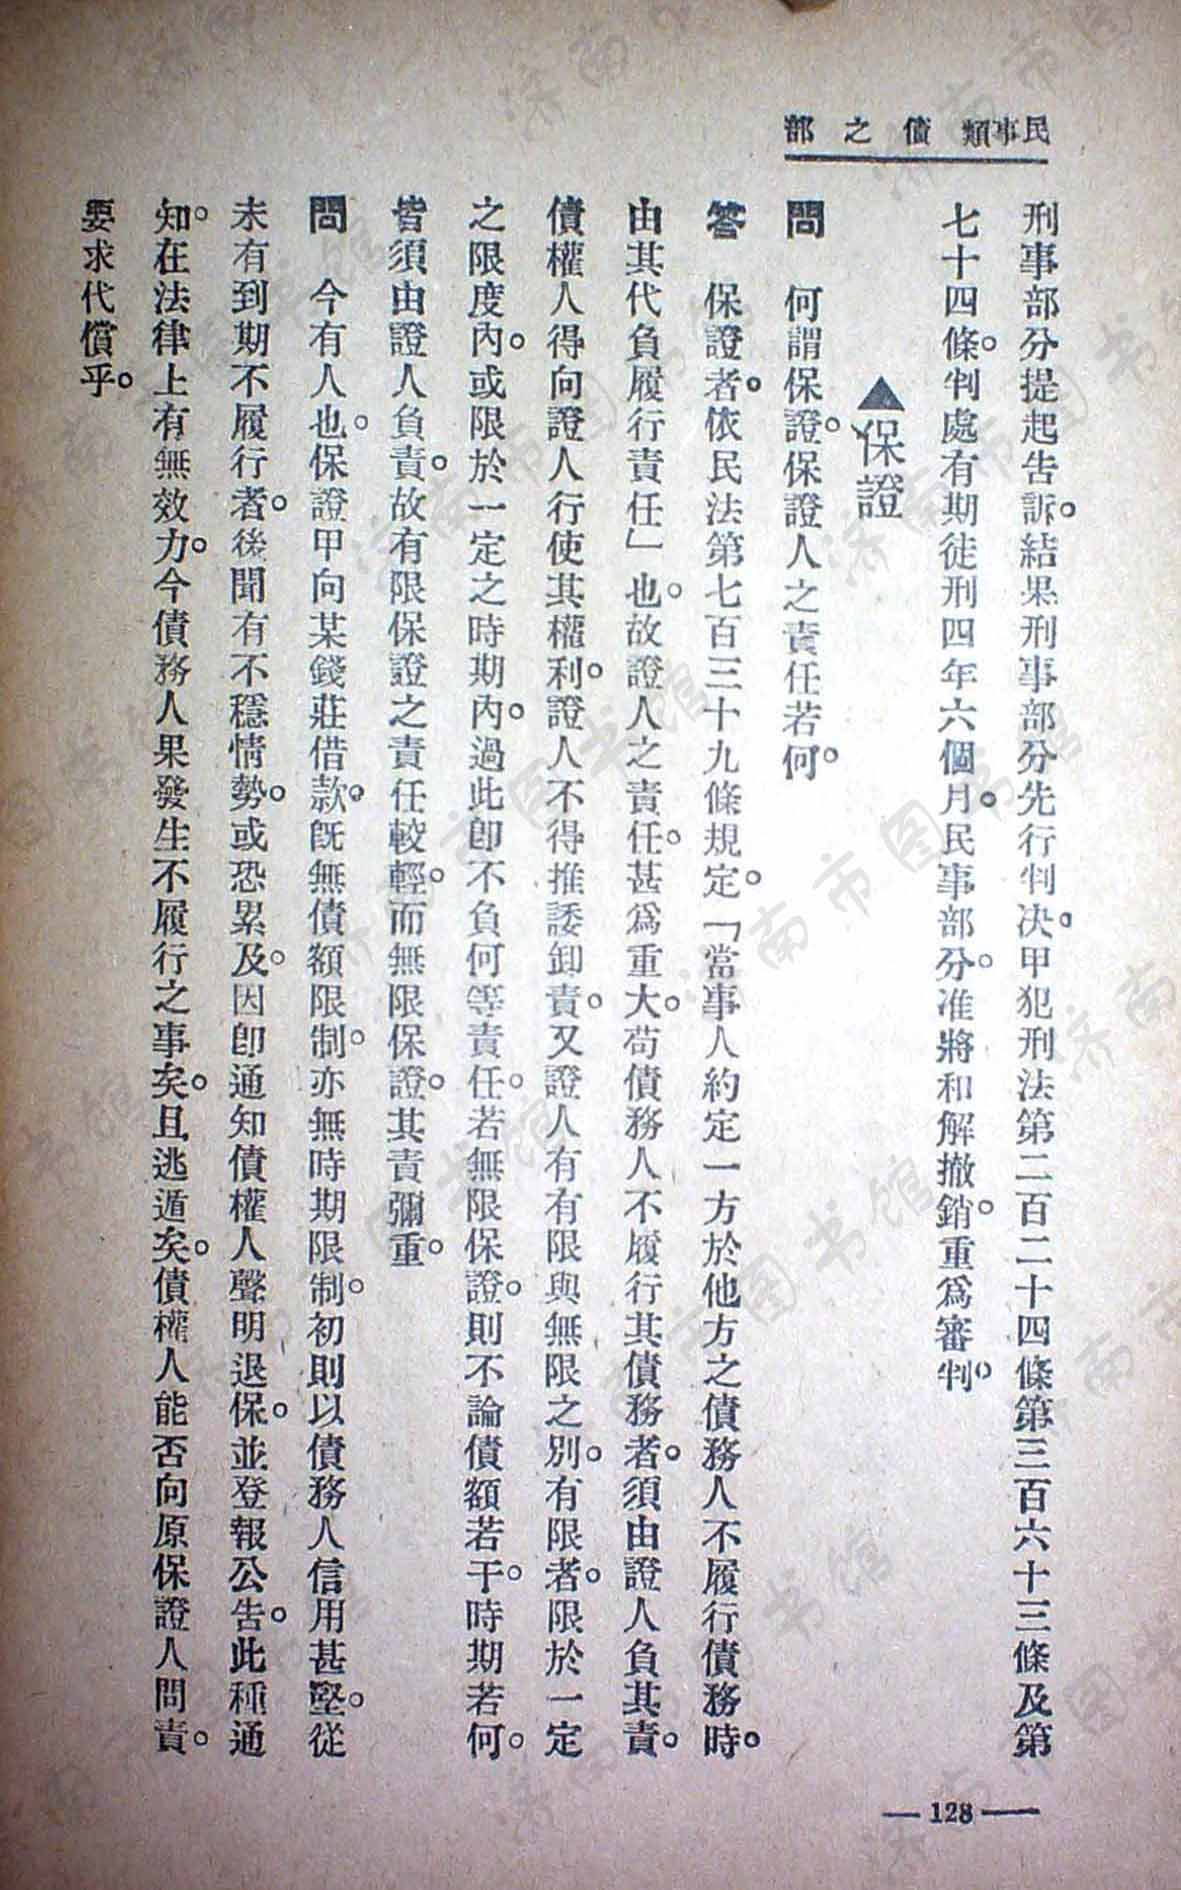 民事類 債之部
刑事部分提起告訴。結果刑事部分先行判决。甲犯刑法第二百二十四條第三百六十三條及第
七十四條。判處有期徒刑四年六個月。民事部分。准將和解撤銷。重爲審判。
▲保證
問　何謂保證。保證人之責任若何。
答　保證者。依民法第七百三十九條規定。「當事人約定一方於他方之債務人不履行債務時。
由其代負履行責任」也。故證人之責任。甚爲重大。苟債務人不履行其債務者。須由證人負其責。
債權人得向證人行使其權利。證人不得推諉卸責。又證人有有限與無限之別。有限者。限於一定
之限度內。或限於一定之時期內。過此卽不負何等責任。若無限保證。則不論債額若干。時期若何。
皆須由證人負責。故有限保證之責任較輕。而無限保證。其責彌重。
問　今有人也。保證甲向某錢莊借款。旣無債額限制。亦無時期限制。初則以債務人信用甚堅。從
未有到期不履行者。後聞有不穩情勢。或恐累及。因卽通知債權人聲明退保。並登報公告。此種通
知。在法律上有無效力。今債務人果發生不履行之事矣。且逃遁矣。債權人能否向原保證人問責。
要求代償乎。
—128—
济南市图书馆